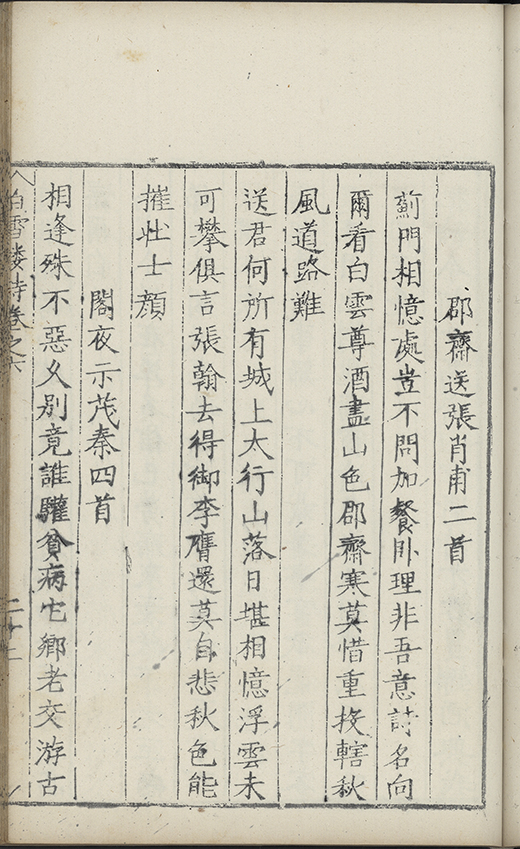 郡齋送張肖甫二首
薊門相憶處豈不問加餐卧理非吾意詩名向
爾看白雲尊酒盡山色郡齋寒莫惜重投轄秋
風道路難
送君何所有城上太行山落日堪相憶浮雲未
可攀俱言張翰去得御李膺還莫自悲秋色能
摧壯士顔
閣夜示茂秦四首
相逢殊不惡久别竟誰驩貧病它鄉老交游古
白雪樓詩卷之六
二十二